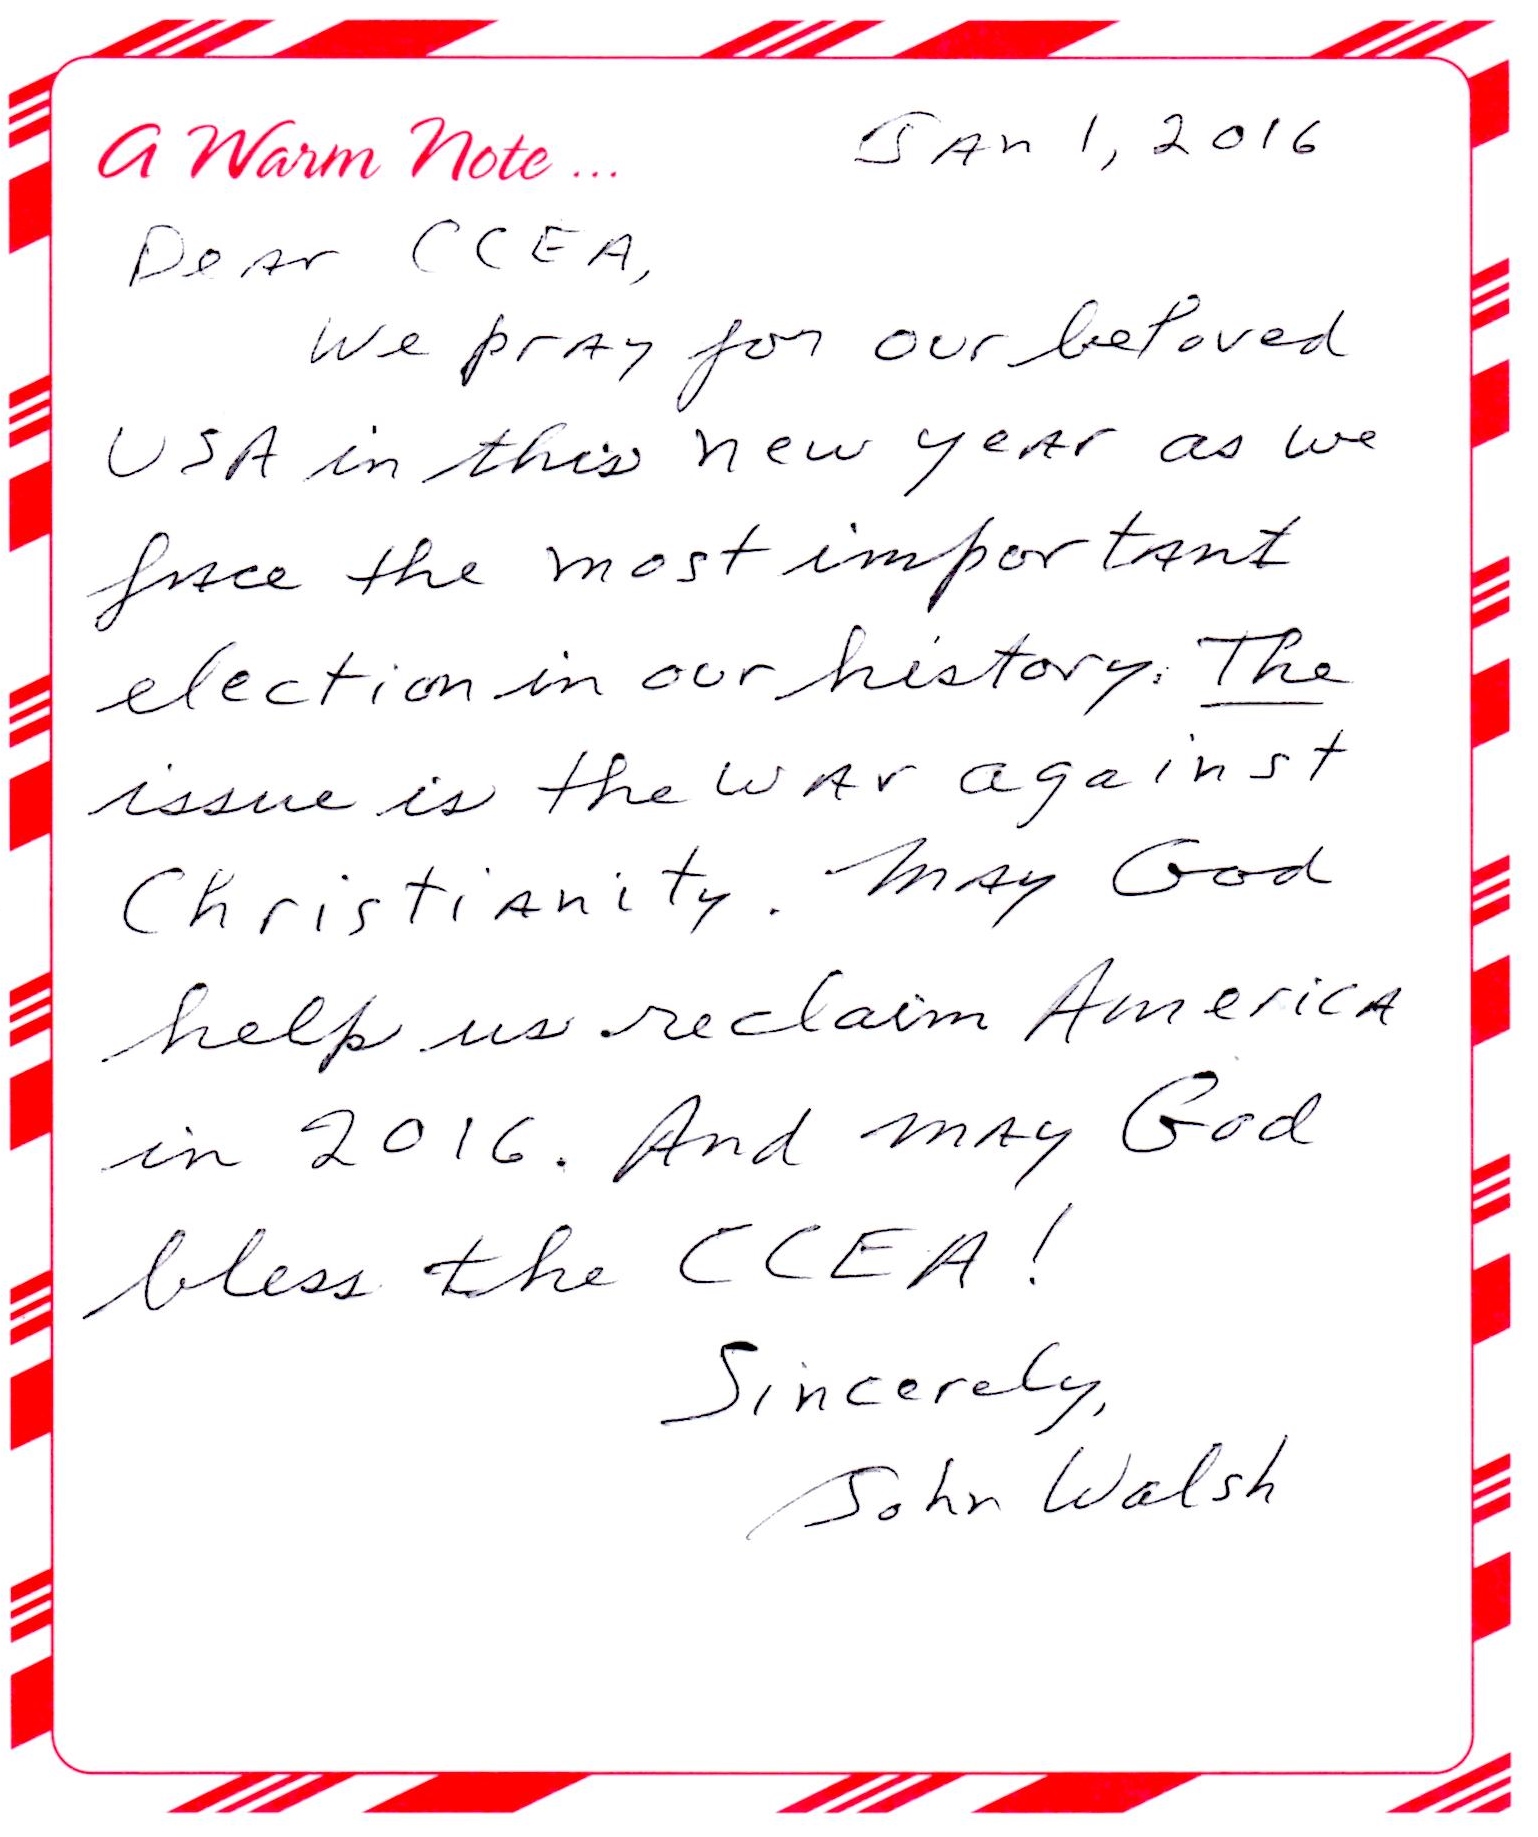 A Warm Note ... Jan 1, 2016
Dear CCEA,
We pray for our beloved
USA in this new year as we
face the most important
election in our history. The
issue is the war against
Christianity. May God
help us reclaim America
in 2016. And may God
bless the CCEA!
Sincerely,
John Walsh